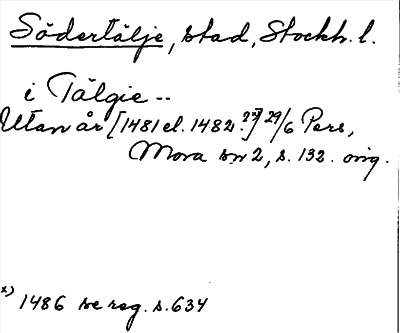 Södertälje, stad, Stockh. l.
i Tälgie --
Utan år [1481 el. 1482?x)] 29/6 Pers,
Mora sn 2, s. 132. orig.
x) 1486 se reg. s. 634